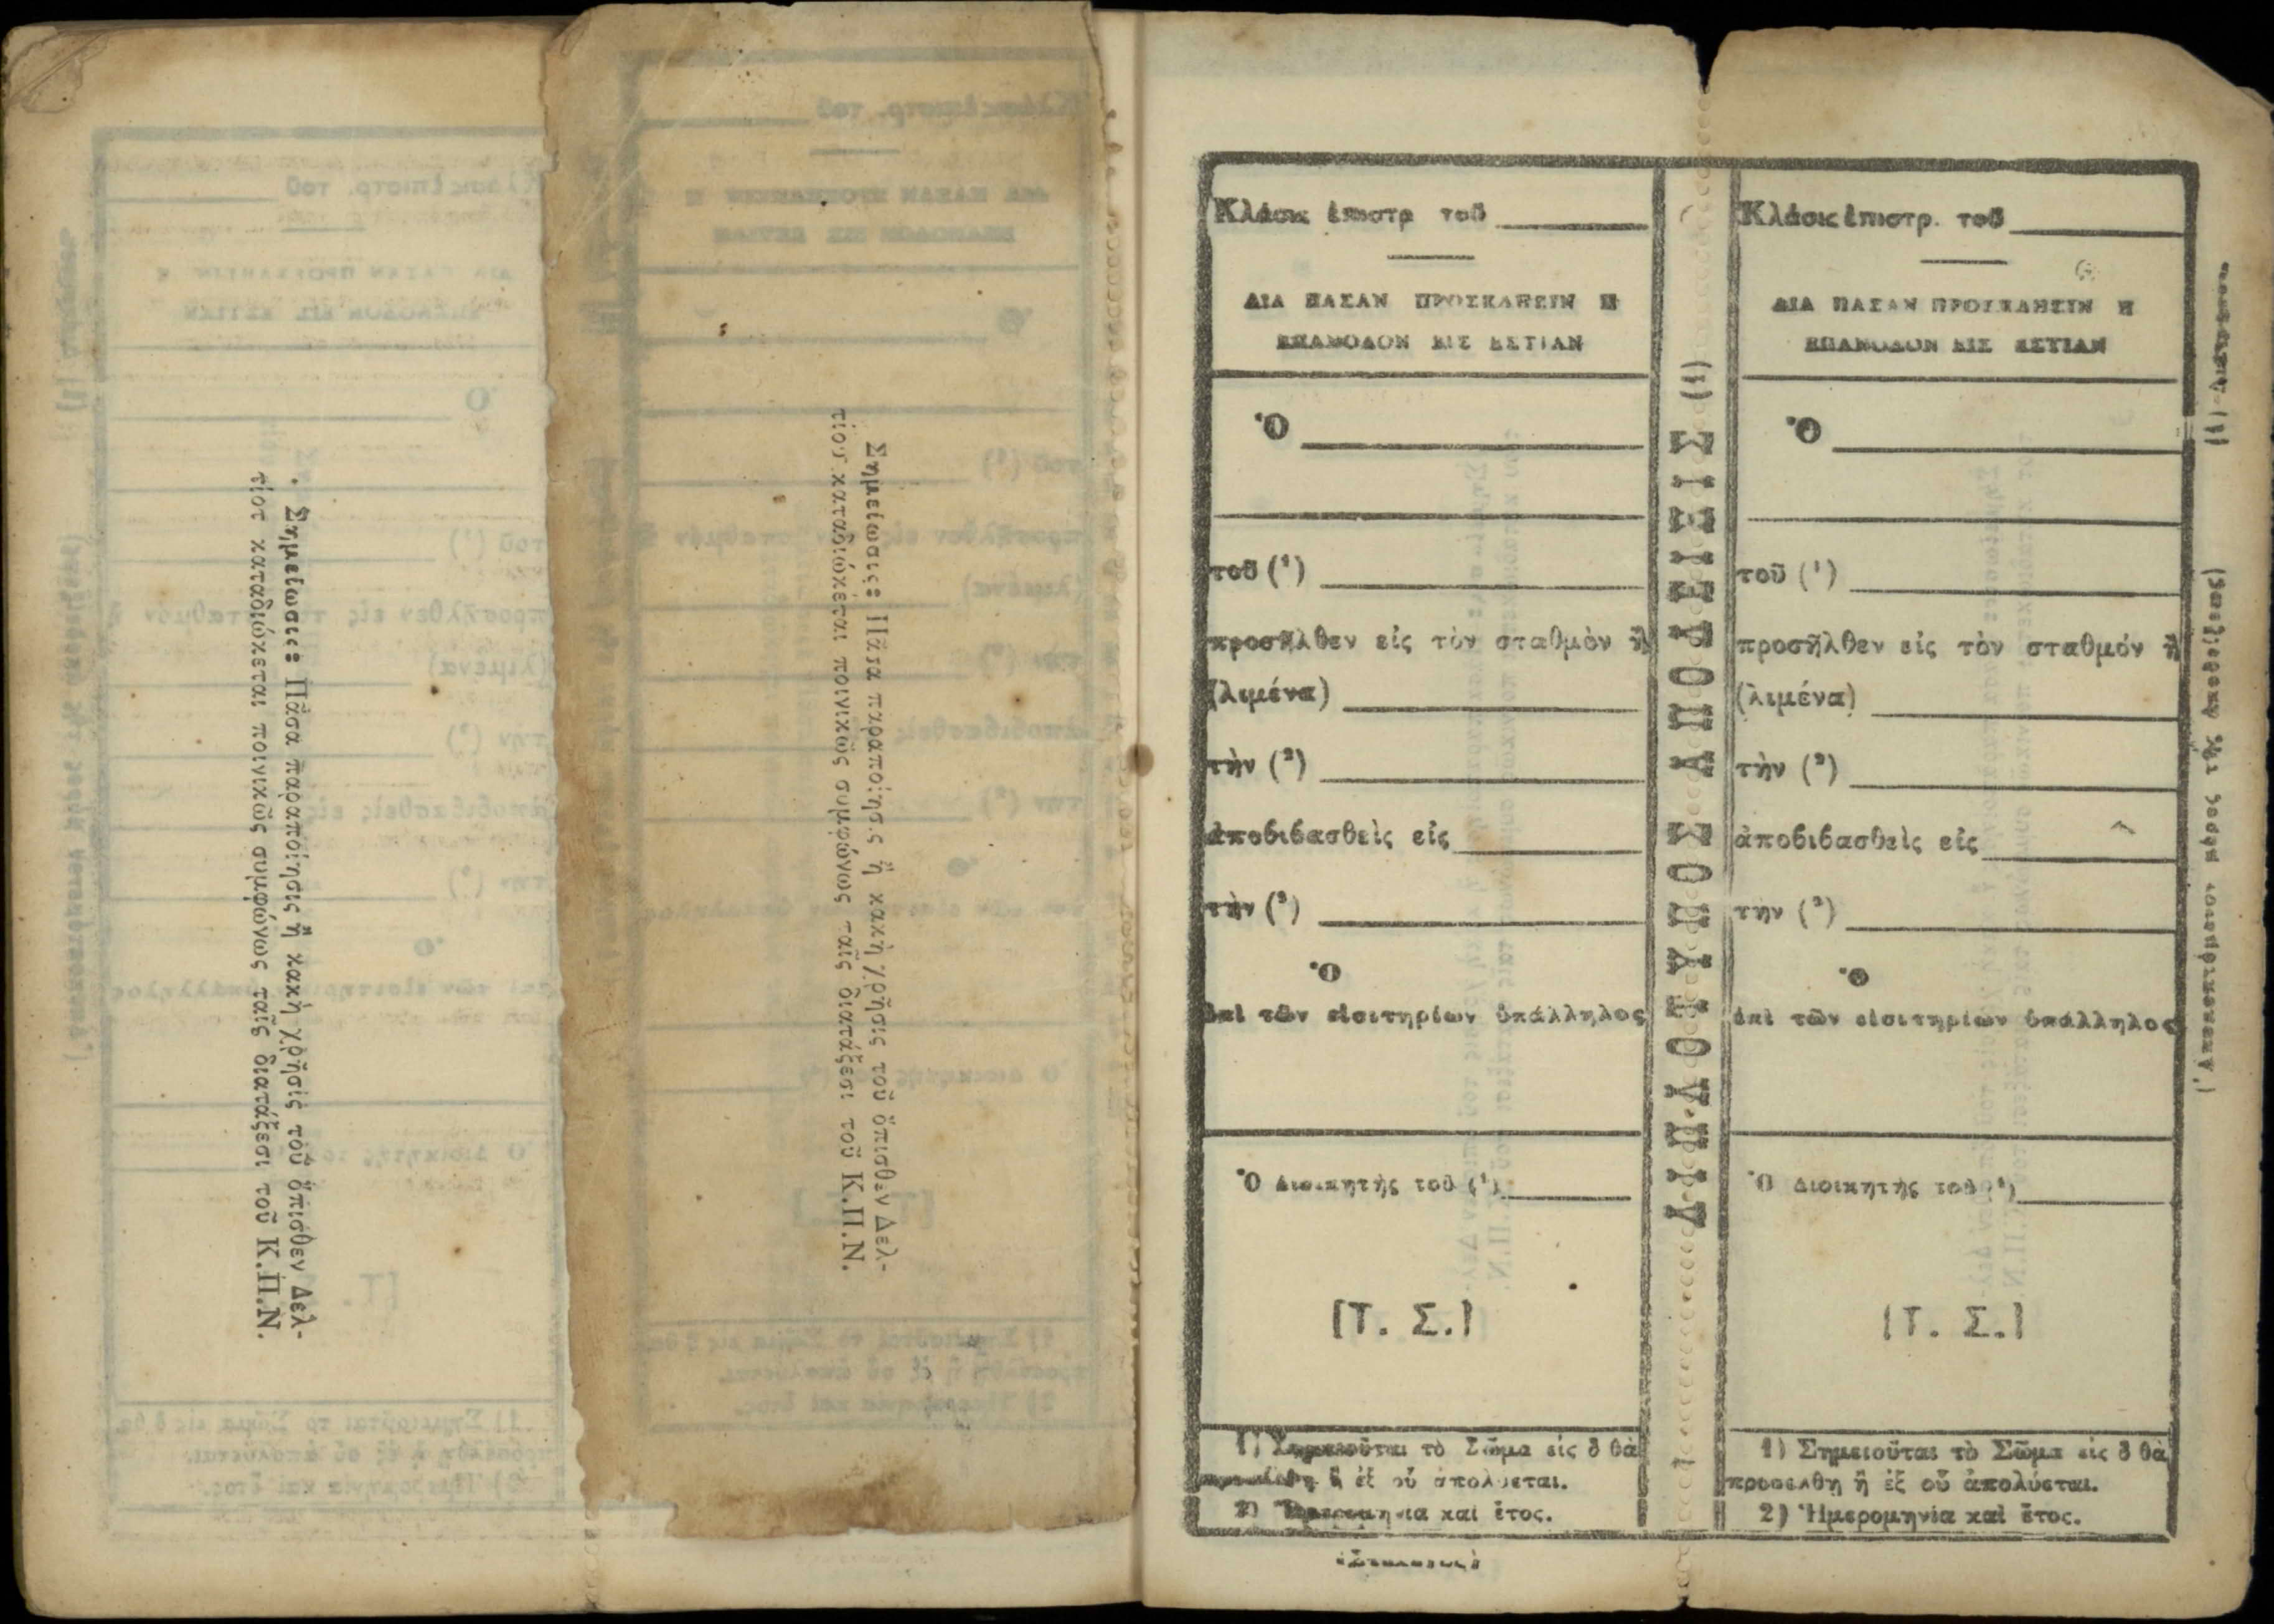 Σημείωσις: Πᾶσα παραποίησις ἢ κακὴ χρῆσις τοῦ ὄπισθεν Δελ-
τίου καταδιώκεται ποινικῶς συμφώνως ταῖς διατάξεσι τοῦ Κ.Π.Ν.
Σημείωσις: Πᾶσα παραποίησις ἢ κακὴ χρῆσις τοῦ ὄπισθεν Δελ-
τίου καταδιώκεται ποινικῶς συμφώνως ταῖς διατάξεσι τοῦ Κ.Π.Ν.
Κλάσις ἐπιστρ τοῦ
ΔΙΑ ΠΑΣΑΝ ΠΡΟΣΚΛΗΣΙΝ Η
ΕΠΑΝΟΔΟΝ ΕΙΣ ΕΣΤΙΑΝ
Ὁ
τοῦ (¹)
προσῆλθεν εἰς τὸν σταθμὸν ἢ
(λιμένα)
τὴν (²)
ἀποβιβασθεὶς εἰς
τὴν (²)
Ὁ
ἐπὶ τῶν εἰσιτηρίων ὑπάλληλος
Ὁ Διοικητής τοῦ (¹)
[Τ. Σ.]
1) Σημειοῦται τὸ Σῶμα εἰς ὃ θὰ
ἢ ἐξ οὗ ἀπολύεται.
2) Ἡμερομηνία καὶ ἔτος.
ΔΙΠΛΟΤΥΠΟΣ ΑΠΟΔΕΙΞΙΣ (1)
Κλάσις ἐπιστρ. τοῦ
ΔΙΑ ΠΑΣΑΝ ΠΡΟΣΚΛΗΣΙΝ Η
ΕΠΑΝΟΔΟΝ ΕΙΣ ΕΣΤΙΑΝ
Ὁ
τοῦ (¹)
προσῆλθεν εἰς τὸν σταθμόν ἢ
(λιμένα)
τὴν (²)
ἀποβιβασθεὶς εἰς
την (²)
Ὁ
ἐπὶ τῶν εἰσιτηρίων ὑπάλληλος
Ὁ Διοικητής τοῦ (¹)
[Τ. Σ.]
1) Σημειοῦται τὸ Σῶμα εἰς ὃ θὰ
προσελθη ἢ ἐξ οὗ ἀπολύεται.
2) Ἡμερομηνία καὶ ἔτος.